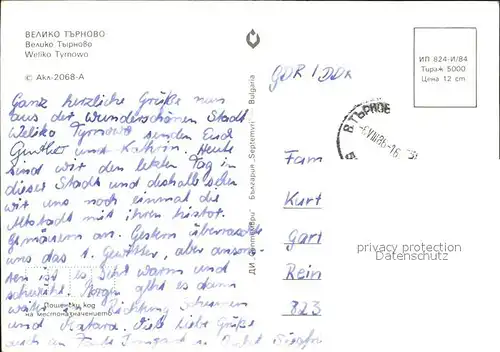 ВЕЛИКО ТЪРНОВО
Велико Тырново
Weliko Tyrnowo
© Акл-2068-А
Ganz herzliche Grüße nun
aus der wunderschönen Stadt
Weliko Tyrnowo senden Euch
Günther und Kathrin. Heute
sind wir den letzten Tag in
dieser Stadt und deshalb sehen
wir uns noch einmal die
Altstadt mit ihren histor.
an. Gestern überraschte
uns das 1. Gewitter, aber
ist es sehr warm und
schwül. Morgen geht es dann
weiter Richtung
und Liebe Grüße
auch an
Пощенски код
на местоназначението
ДИ „Септември" България „Septemvri" Bulgaria
GDR / DDR
ИП 824-И/84
Тираж 5000
Цена 12 cm
В. ТЪРНОВО
Fam
Kurt
Gart
Rein
823
privacy protection
Datenschutz